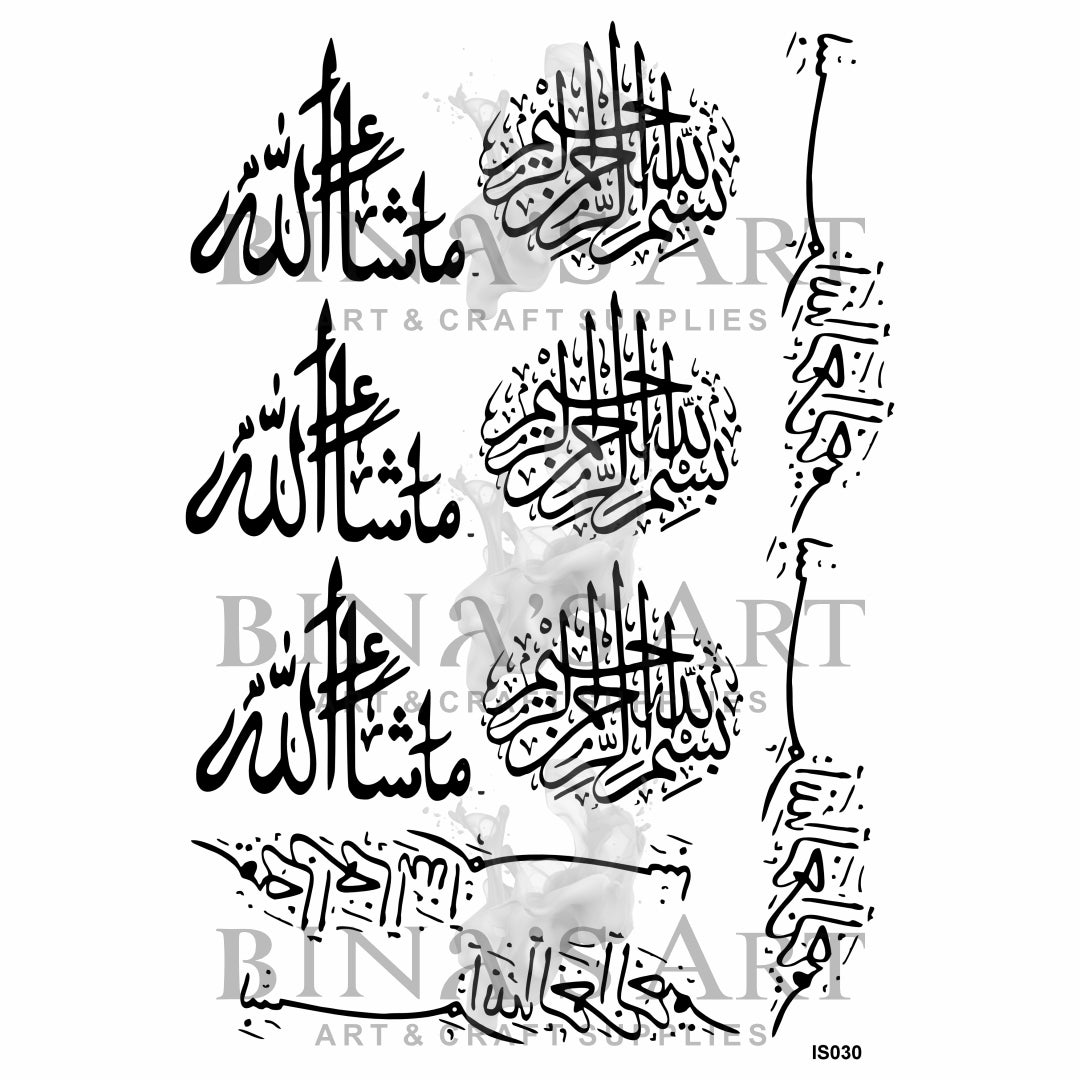 ما شاء الله
بسم الله الرحمن الرحيم
BINA'S ART
ART & CRAFT SUPPLIES
ما شاء الله
بسم الله الرحمن الرحيم
ما شاء الله
بسم الله الرحمن الرحيم
BINA'S ART
ART & CRAFT SUPPLIES
بسم الله الرحمن الرحيم
بسم الله الرحمن الرحيم
BINA'S ART
ART & CRAFT SUPPLIES
بسم الله الرحمن الرحيم
بسم الله الرحمن الرحيم
IS030